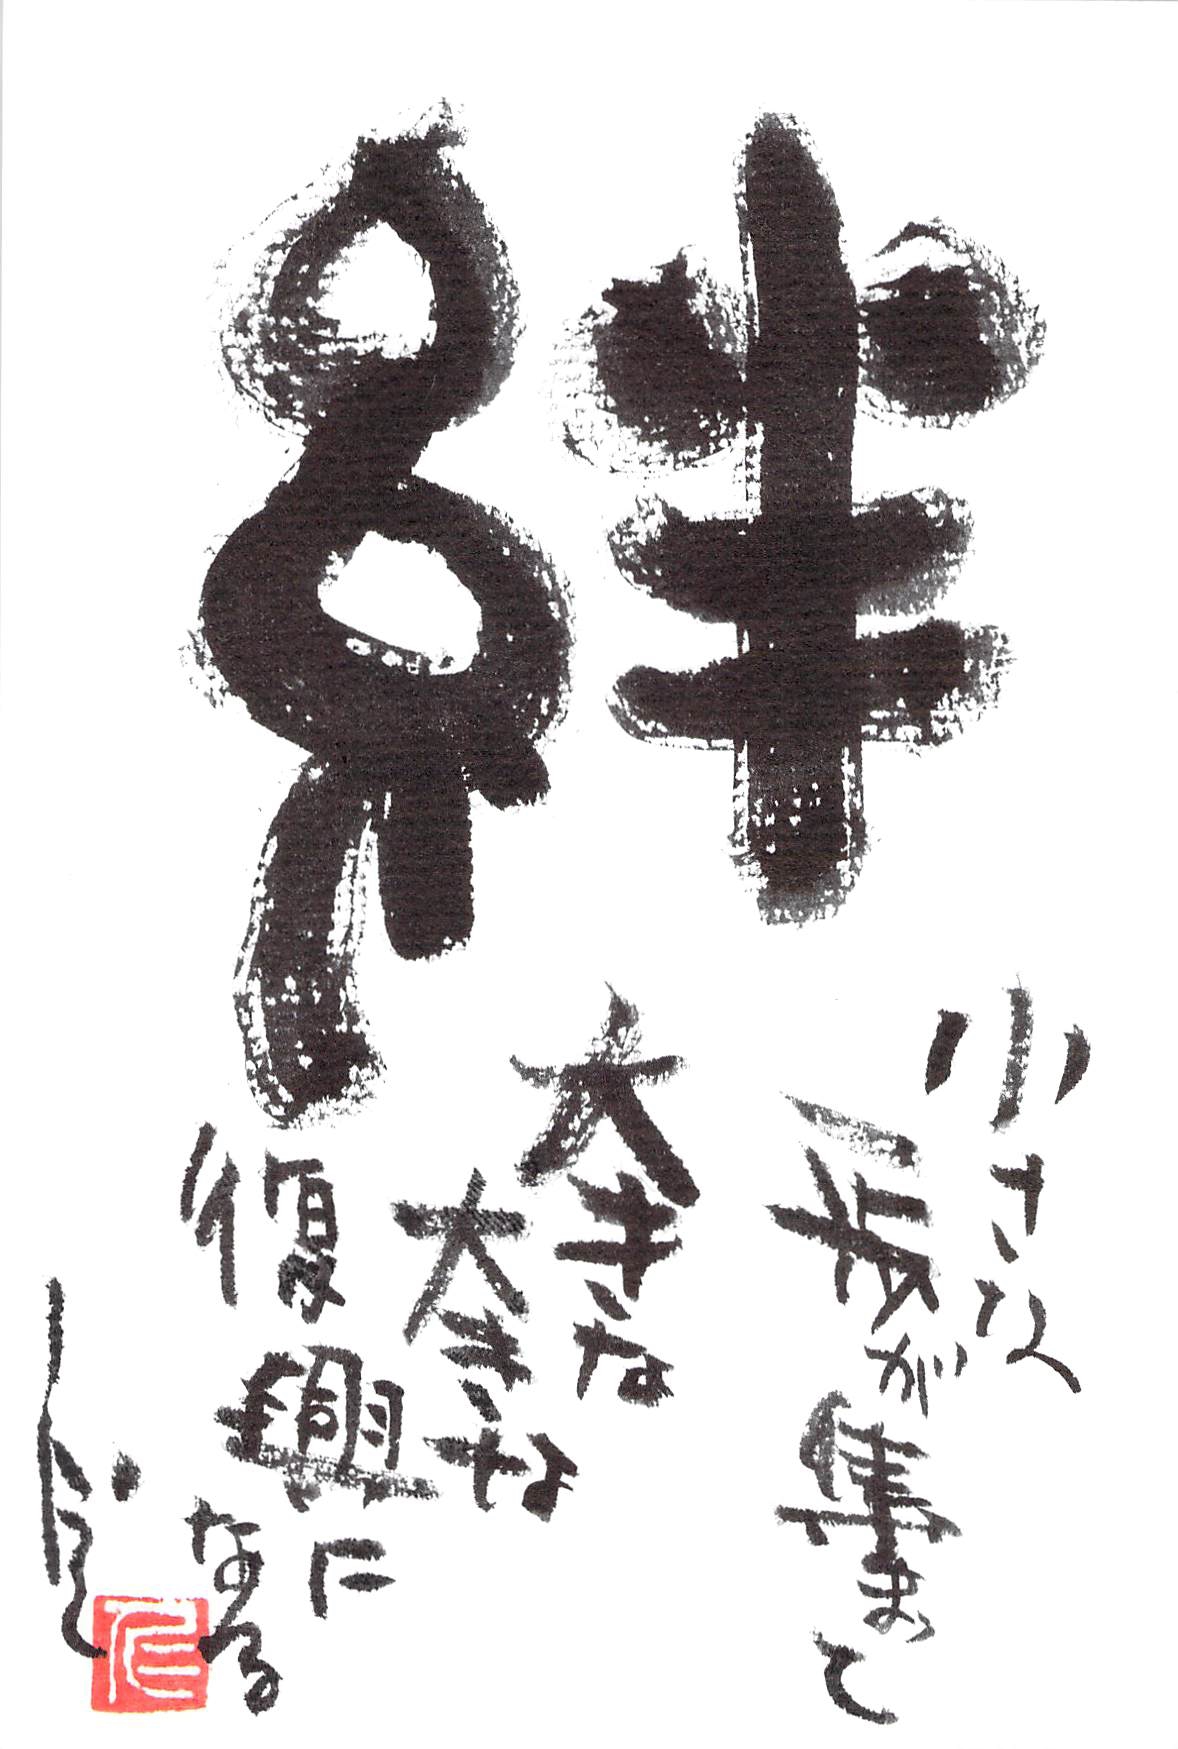 絆
小さな
一歩が集まって
大きな
大きな
復興に
なる